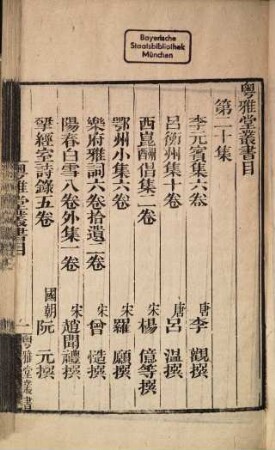 Bayerische
Staatsbibliothek
München
粤雅堂叢書目
第二十集
李元賓集六卷 唐 李觀撰
呂衡州集十卷 唐 呂溫撰
西崑酬倡集二卷 宋 楊億等撰
鄂州小集六卷 宋 羅願撰
樂府雅詞六卷拾遺二卷 宋 曾慥撰
陽春白雪八卷外集一卷 宋 趙聞禮撰
揅經室詩錄五卷 國朝 阮元撰
粤雅堂叢書目
一 粤雅堂叢書